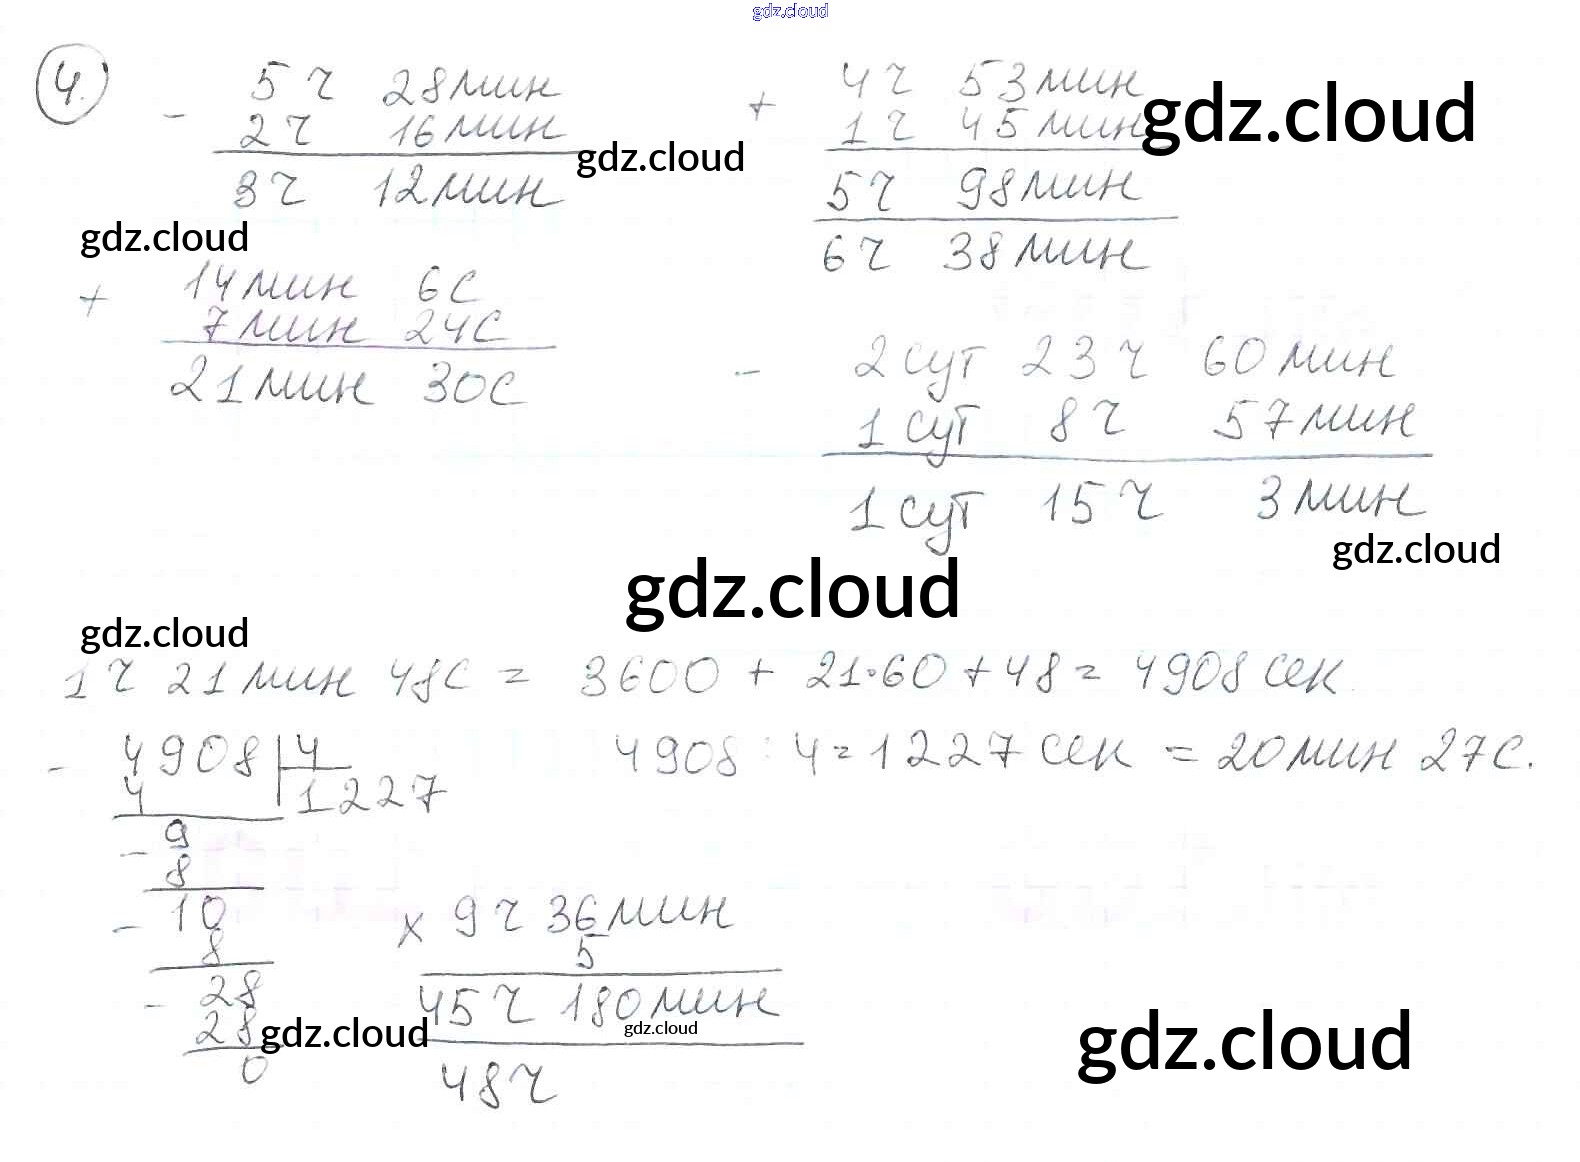 gdz.cloud
4.
- 5 ч 28 мин
2 ч 16 мин
3 ч 12 мин
+ 4 ч 53 мин
1 ч 45 мин
5 ч 98 мин
6 ч 38 мин
gdz.cloud
gdz.cloud
gdz.cloud
+ 14 мин 6 с
7 мин 24 с
21 мин 30 с
- 2 сут 23 ч 60 мин
1 сут 8 ч 57 мин
1 сут 15 ч 3 мин
gdz.cloud
gdz.cloud
gdz.cloud
1 ч 21 мин 48 с = 3600 + 21·60 + 48 = 4908 сек
- 4908 | 4
4 | 1227
- 9
8
- 10
8
- 28
28
0
4908 : 4 = 1227 сек = 20 мин 27 с.
x 9 ч 36 мин
5
45 ч 180 мин
48 ч
gdz.cloud
gdz.cloud
gdz.cloud